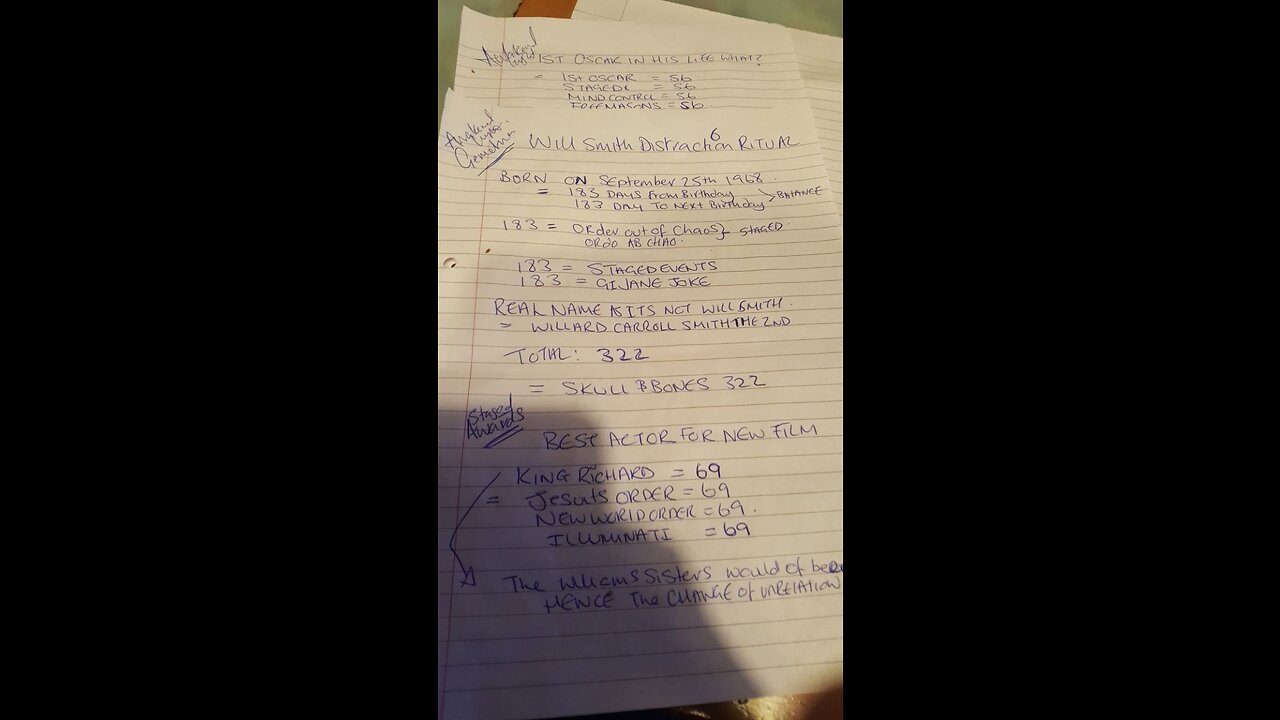 1ST OSCAR IN HIS LIFE WHAT?
= 1st OSCAR = 56.
STAGED = 56
MIND CONTROL = 56
FREEMASONS = 56.
Gemetria
6
Will Smith Distraction RITUAL
BORN ON September 25th 1968.
= 183 DAYS From Birthday
183 DAY TO NEXT Birthday > BALANCE
183 = ORder out of Chaos} STAGED.
ORDO AB CHAO.
183 = STAGED EVENTS
183 = GIJANE JOKE
REAL NAME AS ITS NOT WILL SMITH.
= WILLARD CARROLL SMITH THE 2ND
TOTAL: 322
= SKULL & BONES 322
Staged
Awards
BEST ACTOR FOR NEW FILM
KING RICHARD = 69
= Jesuits ORDER = 69
NEW WORLD ORDER = 69.
ILLUMINATI = 69
The Williams Sisters would of been
HENCE The CHANGE of